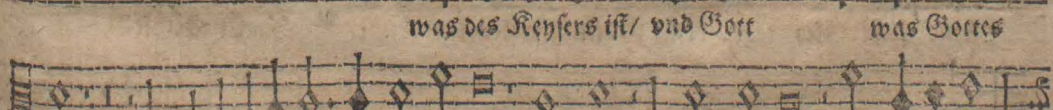 was des Keyſers iſt/ vnd Gott was Gottes